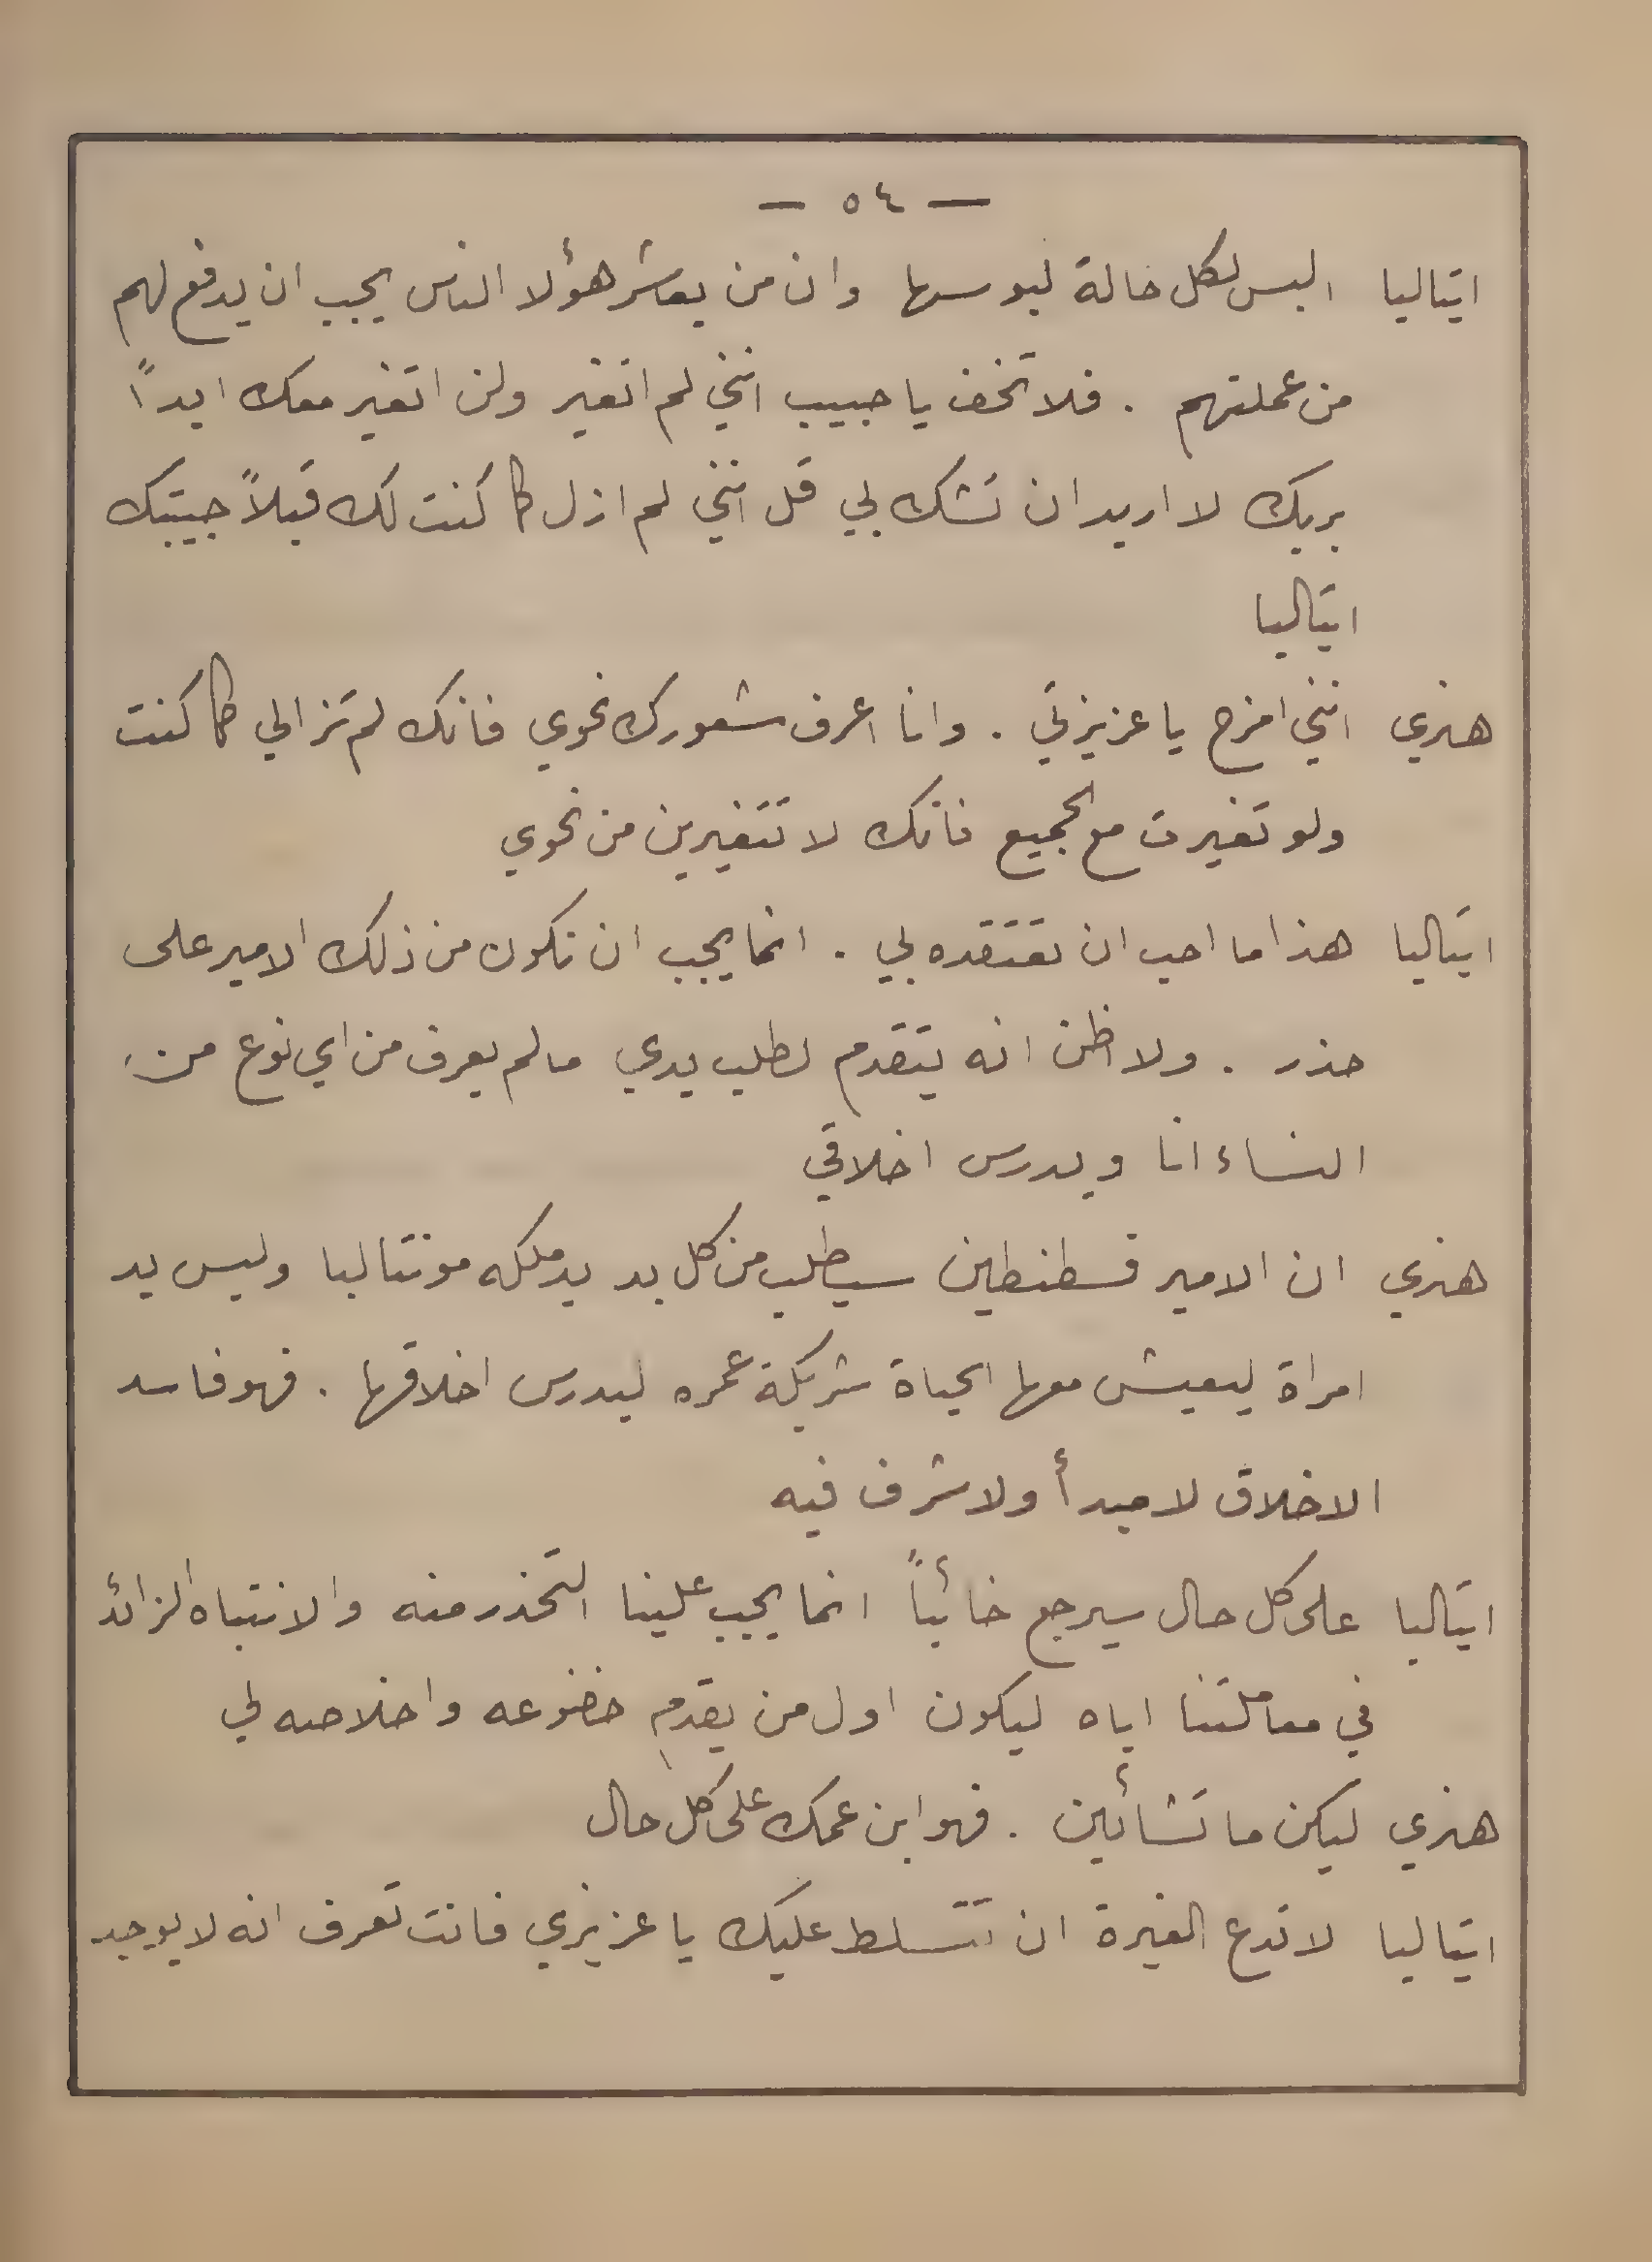 — ٥٤ —
ايتاليا البس لكل حالة لبوسها وان من يعاشر هؤلا الناس يجب ان يدفع لهم
من عملتهم . فلا تخف يا حبيب انني لم اتغير ولن اتغير معك ابداً
بربك لا اريد ان تشك بي قل انني لم ازل كما كنت لك قبلاً حبيبتك
ايتاليا
هنري انني امزح يا عزيزتي . وانا اعرف شعورك نحوي فانك لم تزالي كما كنت
ولو تغيرت مع الجميع فانك لا تتغيرين من نحوي
ايتاليا هذا ما احب ان تعتقده بي . انما يجب ان نكون من ذلك الامير على
حذر . ولا اظن انه يتقدم لطلب يدي ما لم يعرف من اي نوع من
النساء انا ويدرس اخلاقي
هنري ان الامير قسطنطين سيطلب من كل بد يد ملكه مونتاليا وليس يد
امراة ليعيش معها الحياة شريكة عمره ليدرس اخلاقها . فهو فاسد
الاخلاق لا مبدأ ولا شرف فيه
ايتاليا على كل حال سيرجع خائباً انما يجب علينا التحذر منه والانتباه الزائد
في معاملتنا اياه ليكون اول من يقدم خضوعه واخلاصه لي
هنري ليكن ما تشائين . فهو ابن عمك على كل حال
ايتاليا لا تدع الغيرة ان تتسلط عليك يا عزيزي فانت تعرف انه لا يوجد